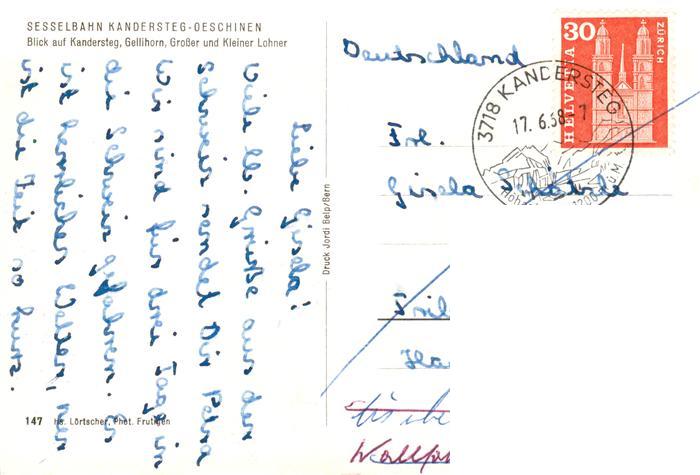 SESSELBAHN KANDERSTEG-OESCHINEN
Blick auf Kandersteg, Gellihorn, Großer und Kleiner Lohner
Liebe Gisela!
Viele lb. Grüße aus der
Schweiz sendet Dir Petra
Wir sind für drei Tage in
die Schweiz gefahren. Es
ist herrliches Wetter, nur
ist die Zeit so kurz.
147 Hs. Lörtscher, Phot. Frutigen
Druck Jordi Belp/Bern
Deutschland
30
HELVETIA
ZÜRICH
3718 KANDERSTEG
17.6.68-7
1200 M
Frl.
Gisela